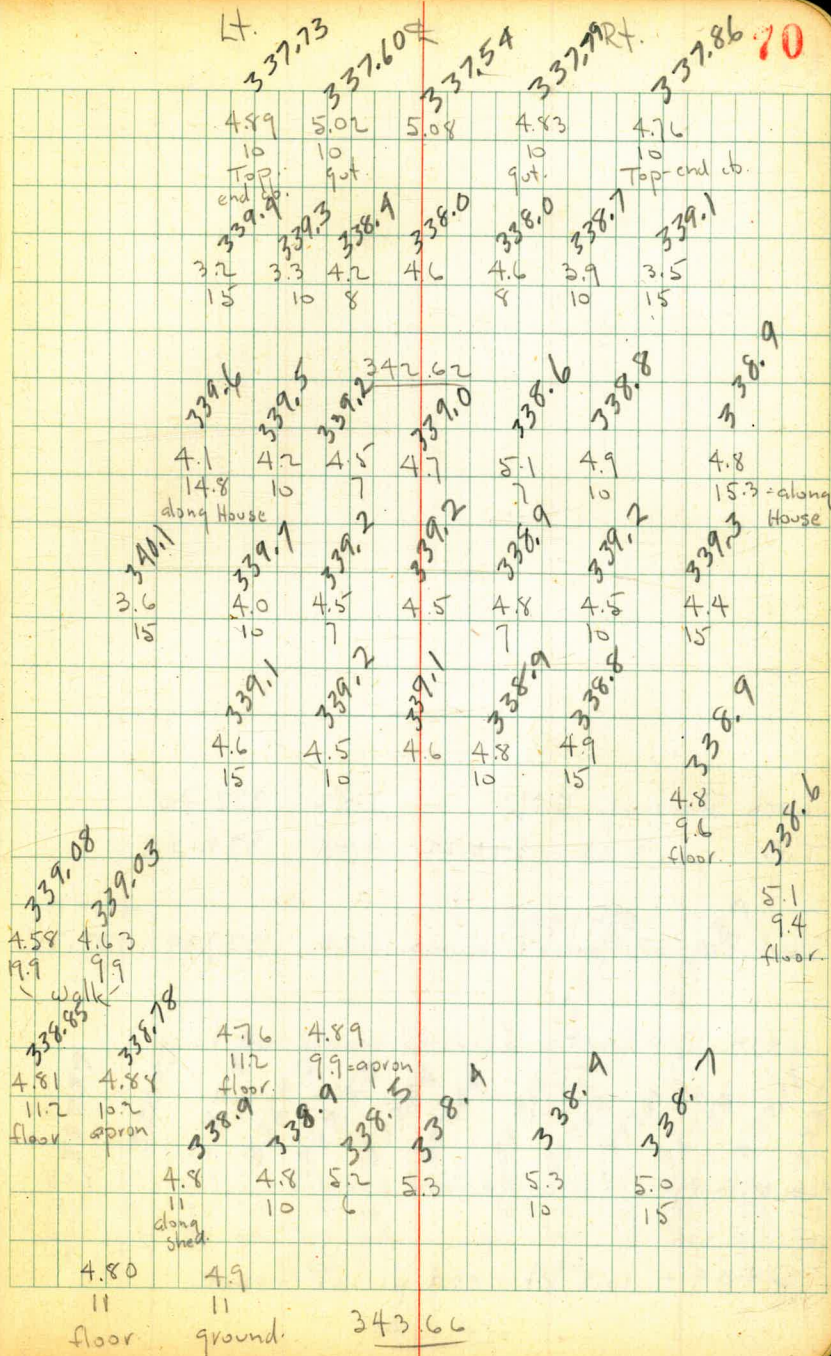 Lt. ℄ Rt. 70
337.73 337.60 337.54 337.79 337.86
4.89 5.02 5.08 4.83 4.76
10 10 10 10
Top gut. gut. Top-end cb.
end cb.
339.4 339.3 338.4 338.0 338.0 338.7 339.1
3.2 3.3 4.2 4.6 4.6 3.9 3.5
15 10 8 8 10 15
342.62
339.6 339.5 339.2 339.0 338.6 338.8 338.9
4.1 4.2 4.5 4.7 5.1 4.9 4.8
14.8 10 7 7 10 15.3 = along
along House House
340.1 339.7 339.2 339.2 338.9 339.2 339.3
3.6 4.0 4.5 4.5 4.8 4.5 4.4
15 10 7 7 10 15
339.1 339.2 339.1 338.9 338.8 338.9
4.6 4.5 4.6 4.8 4.9
15 10 10 15
4.8
9.6
floor.
338.6
5.1
9.4
floor.
339.08 339.03
4.58 4.63
9.9 9.9
Walk
338.85 338.78
4.76 4.89
11.2 9.9=apron
floor.
4.81 4.88
11.2 10.2
floor apron
338.9 338.9 338.5 338.4 338.4 338.7
4.8 4.8 5.2 5.3 5.3 5.0
11 10 6 10 15
along
shed.
4.80 4.9
11 11
floor ground.
343.66